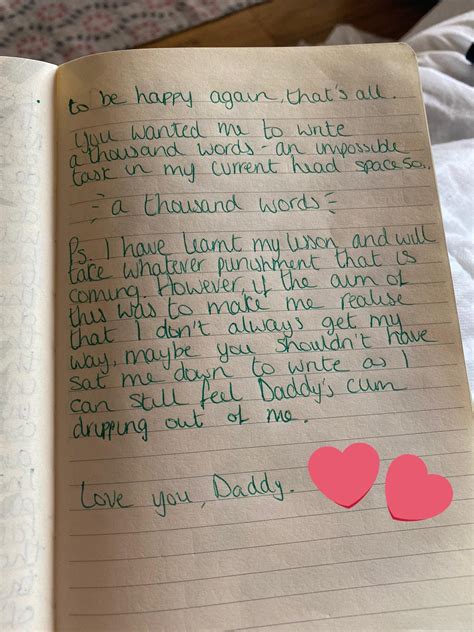 to be happy again, that's all.
You wanted me to write
a thousand words - an impossible
task in my current head space so..
a thousand words
Ps. I have learnt my lesson and will
take whatever punishment that is
coming. However, if the aim of
this was to make me realise
that I don't always get my
way, maybe you shouldn't have
sat me down to write as I
can still feel Daddy's cum
dripping out of me.
Love you, Daddy.